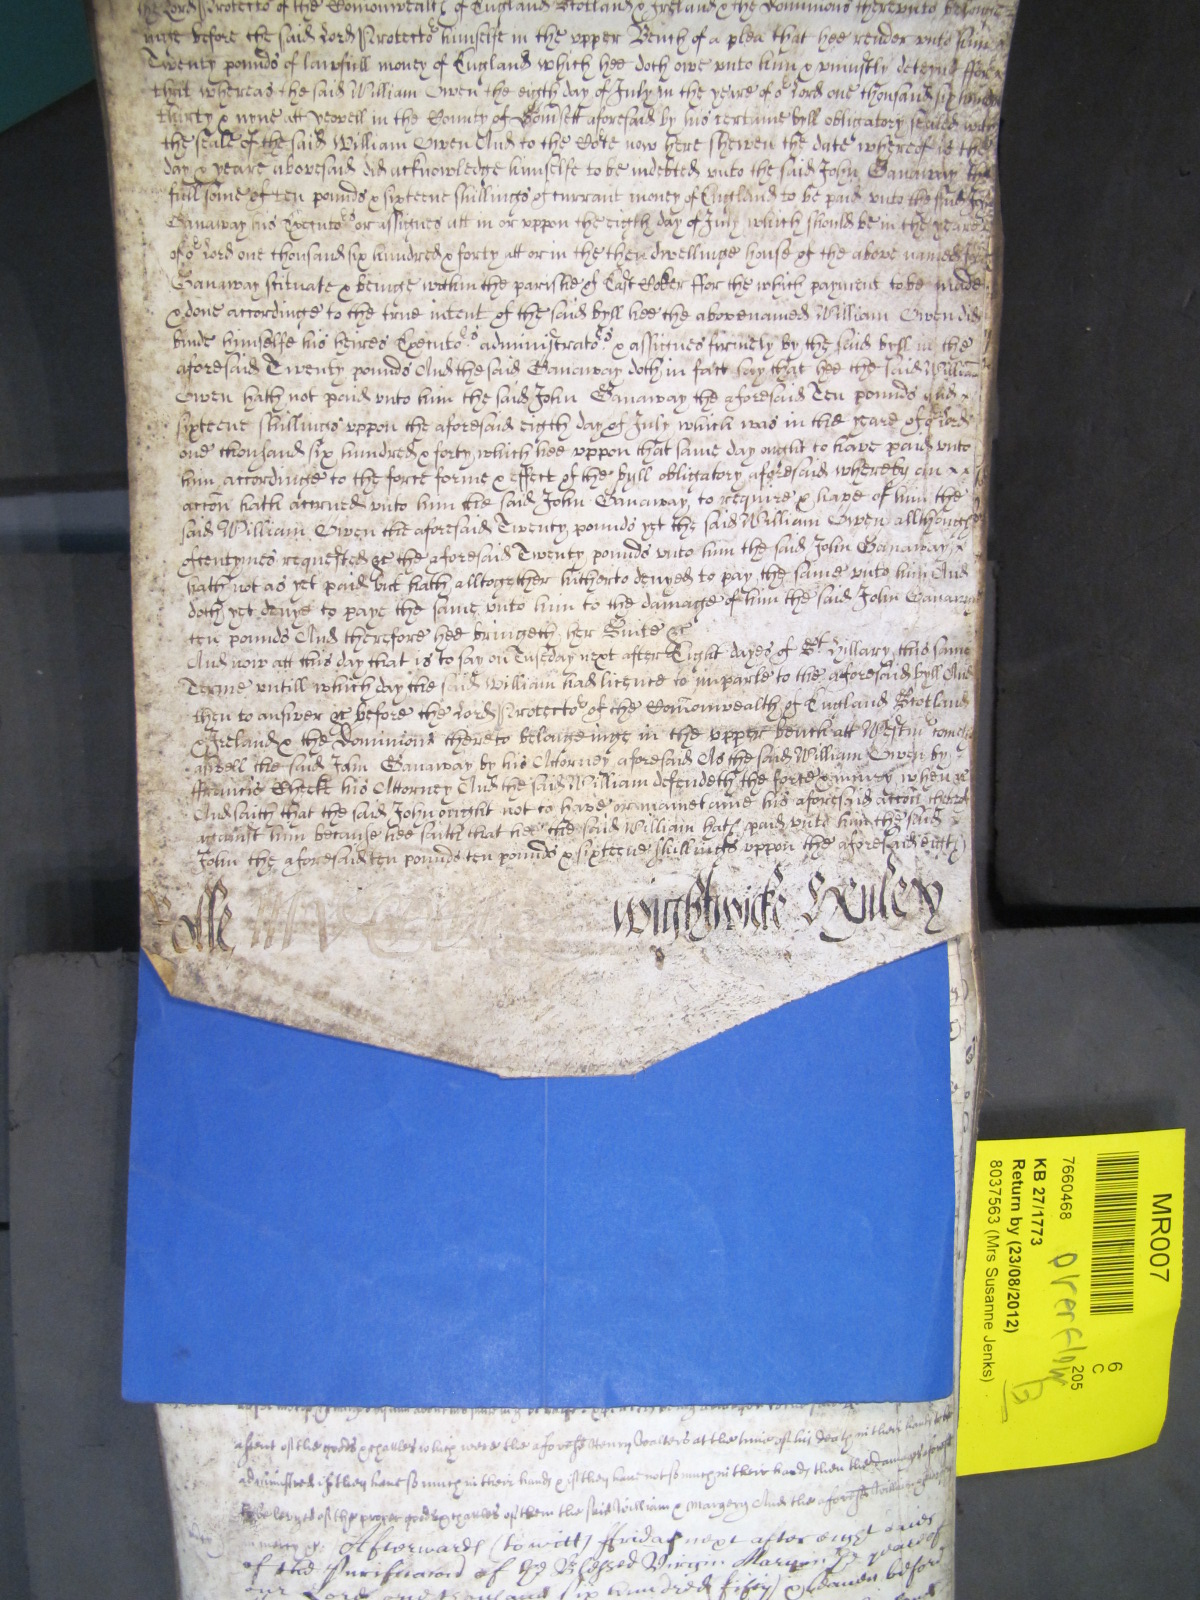 the Lord Protector of the Comonwealth of England Scotland & Ireland & the Dominions thereunto
before the said Lord Protector himselfe in the upper Bench of a plea that hee render unto him
Twenty pounds of lawfull money of England which hee doth owe unto him & uniustly deteyne ffor
that whereas the said William Owen the eigth day of July in the yeare of or Lord one thousand six
thirty & nyne att yeovell in the County of Somsett aforesaid by his certaine byll obligatory sealed with
the seale of the said William Owen And to the Cote now here shewen the date whereof is the
day & yeare abovesaid did acknowledge himselfe to be indebted unto the said John Ganaway the
full some of ten pounds & sixteene shillings of currant money of England to be paid unto the said John
Ganaway his Executors or assignes att in or uppon the eigth day of July which should be in the yeare
of or Lord one thousand six hundred & forty att or in the then dwellinge house of the above named John
Ganaway scituate & beinge within the parishe of East Coker ffor the which payment to be made
& done accordinge to the true intent of the said byll hee the abovenamed William Owen did
binde himselfe his heires Executors administrators & assignes firmely by the said byll in the
aforesaid Twenty pounds And the said Ganaway doth in fact say that hee the said William
Owen hath not paid unto him the said John Ganaway the aforesaid Ten pounds and
sixteene shillings uppon the aforesaid eigth day of July which was in the yeare of or Lord
one thousand six hundred & forty which hee uppon that same day ought to have paid unto
him accordinge to the force forme & effect of the byll obligatory aforesaid whereby an
accon hath accrued unto him the said John Ganaway to require & have of him the
said William Owen the aforesaid Twenty pounds yet the said William Owen allthough
oftentymes requested &c the aforesaid Twenty pounds unto him the said John Ganaway
hath not as yet paid but hath alltogether hitherto denyed to pay the same unto him And
doth yet denye to paye the same unto him to the damage of him the said John Ganaway
ten pounds And therefore hee bringeth her Suite &c
And now att this day that is to say on Tuseday next after Eight dayes of St Hillary this same
Terme untill which day the said William had licence to imparle to the aforesaid byll And
then to answer &c before the Lord Protector of the Comonwealth of England Scotland
& Ireland & the Dominions thereto belonginge in the upper bench att Westm come
aswell the said John Ganaway by his Attorney aforesaid As the said William Owen by
ffrancis his Attorney And the said William defendeth the force & iniury when &c
And saith that the said John ought not to have or mainetaine his aforesaid accon thereof
against him because hee saith that hee the said William hath paid unto him the said
John the aforesaid ten pounds ten pounds & sixteene shillings uppon the aforesaid eigth
Rolle
Wightwicke
MR007
6
C
205
7660468
overflow
KB 27/1773
Return by (23/08/2012)
8037563 (Mrs Susanne Jenks)
of the goods & chattles which were the aforesd Henry at the time of his death in their hands to be
administred if they have so much in their hands & if they have not so much in their hands then the damages aforesd
to be levyed of the proper goods & chattles of them the said William & Margery And the aforesd William
in mercy &c
Afterwards (to witt) ffriday next after eight daies
of the Purificacon of the Blessed Virgin Mary in the yeare of
our Lord one thousand six hundred fifty & seaven before